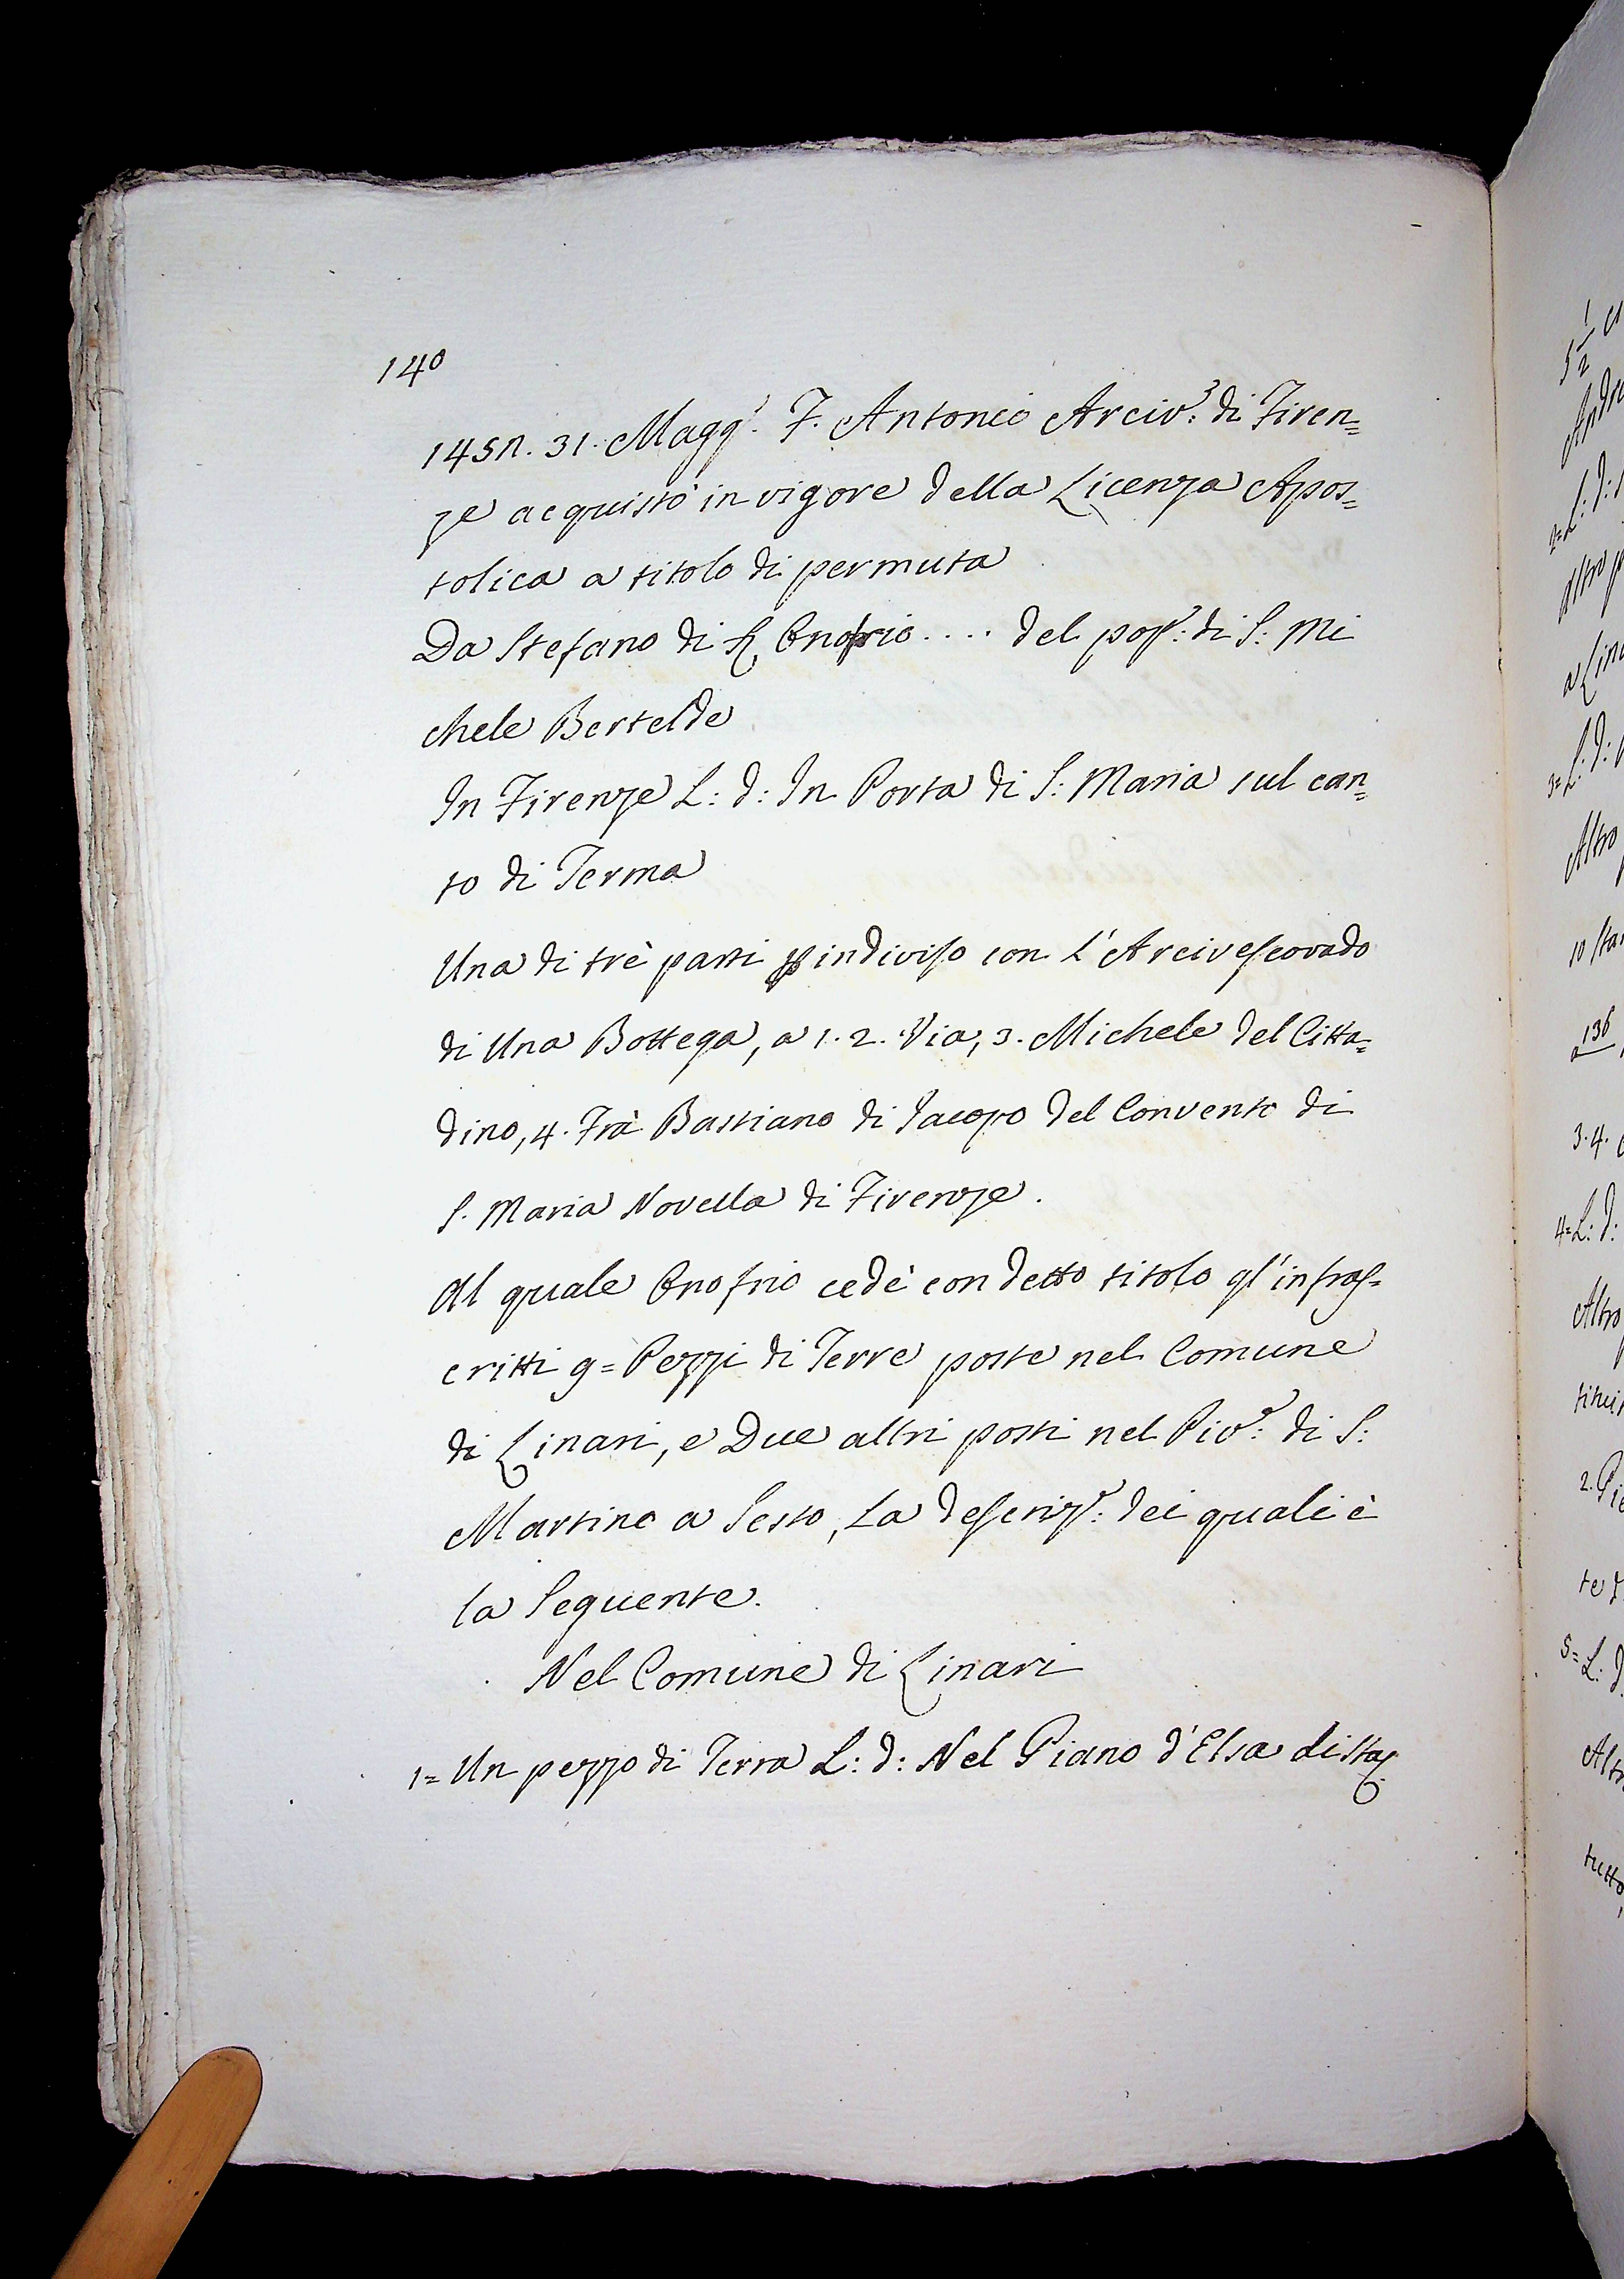 140
31. Magg.o F. Antonio Arciv.o: di Firen=
ze acquistò in vigore della Licenza Apos=
tolica a titolo di permuta
Da Stefano di Onofrio .... del pop.o: di S: Mi
chele Bertelde
In Firenze L: d: In Porta di S: Maria sul can=
to di Terma
Una di trè parti p indiviso con L'Arcivescovado
di Una Bottega, a 1. 2. Via, 3. Michele del Citta=
dino, 4. Frà Bastiano di Jacopo del Convento di
S. Maria Novella di Firenze.
Al quale Onofrio cedè con detto titolo gl'infras=
critti 9= Pezzi di Terre poste nel Comune
di Linari, e Due altri posti nel Piv.e: di S:
Martino a Sesto, La descriz.e: dei quali è
la Seguente.
Nel Comune di Linari
1= Un pezzo di Terra L: d: Nel Piano d'Elsa di
1/2
Andre
2= L: d:
altro p
a Lina
3= L: d:
Altro
10 sta
136
3. 4.
4= L: d:
Altro
2.
te
5= L: d
Altr
tutto,